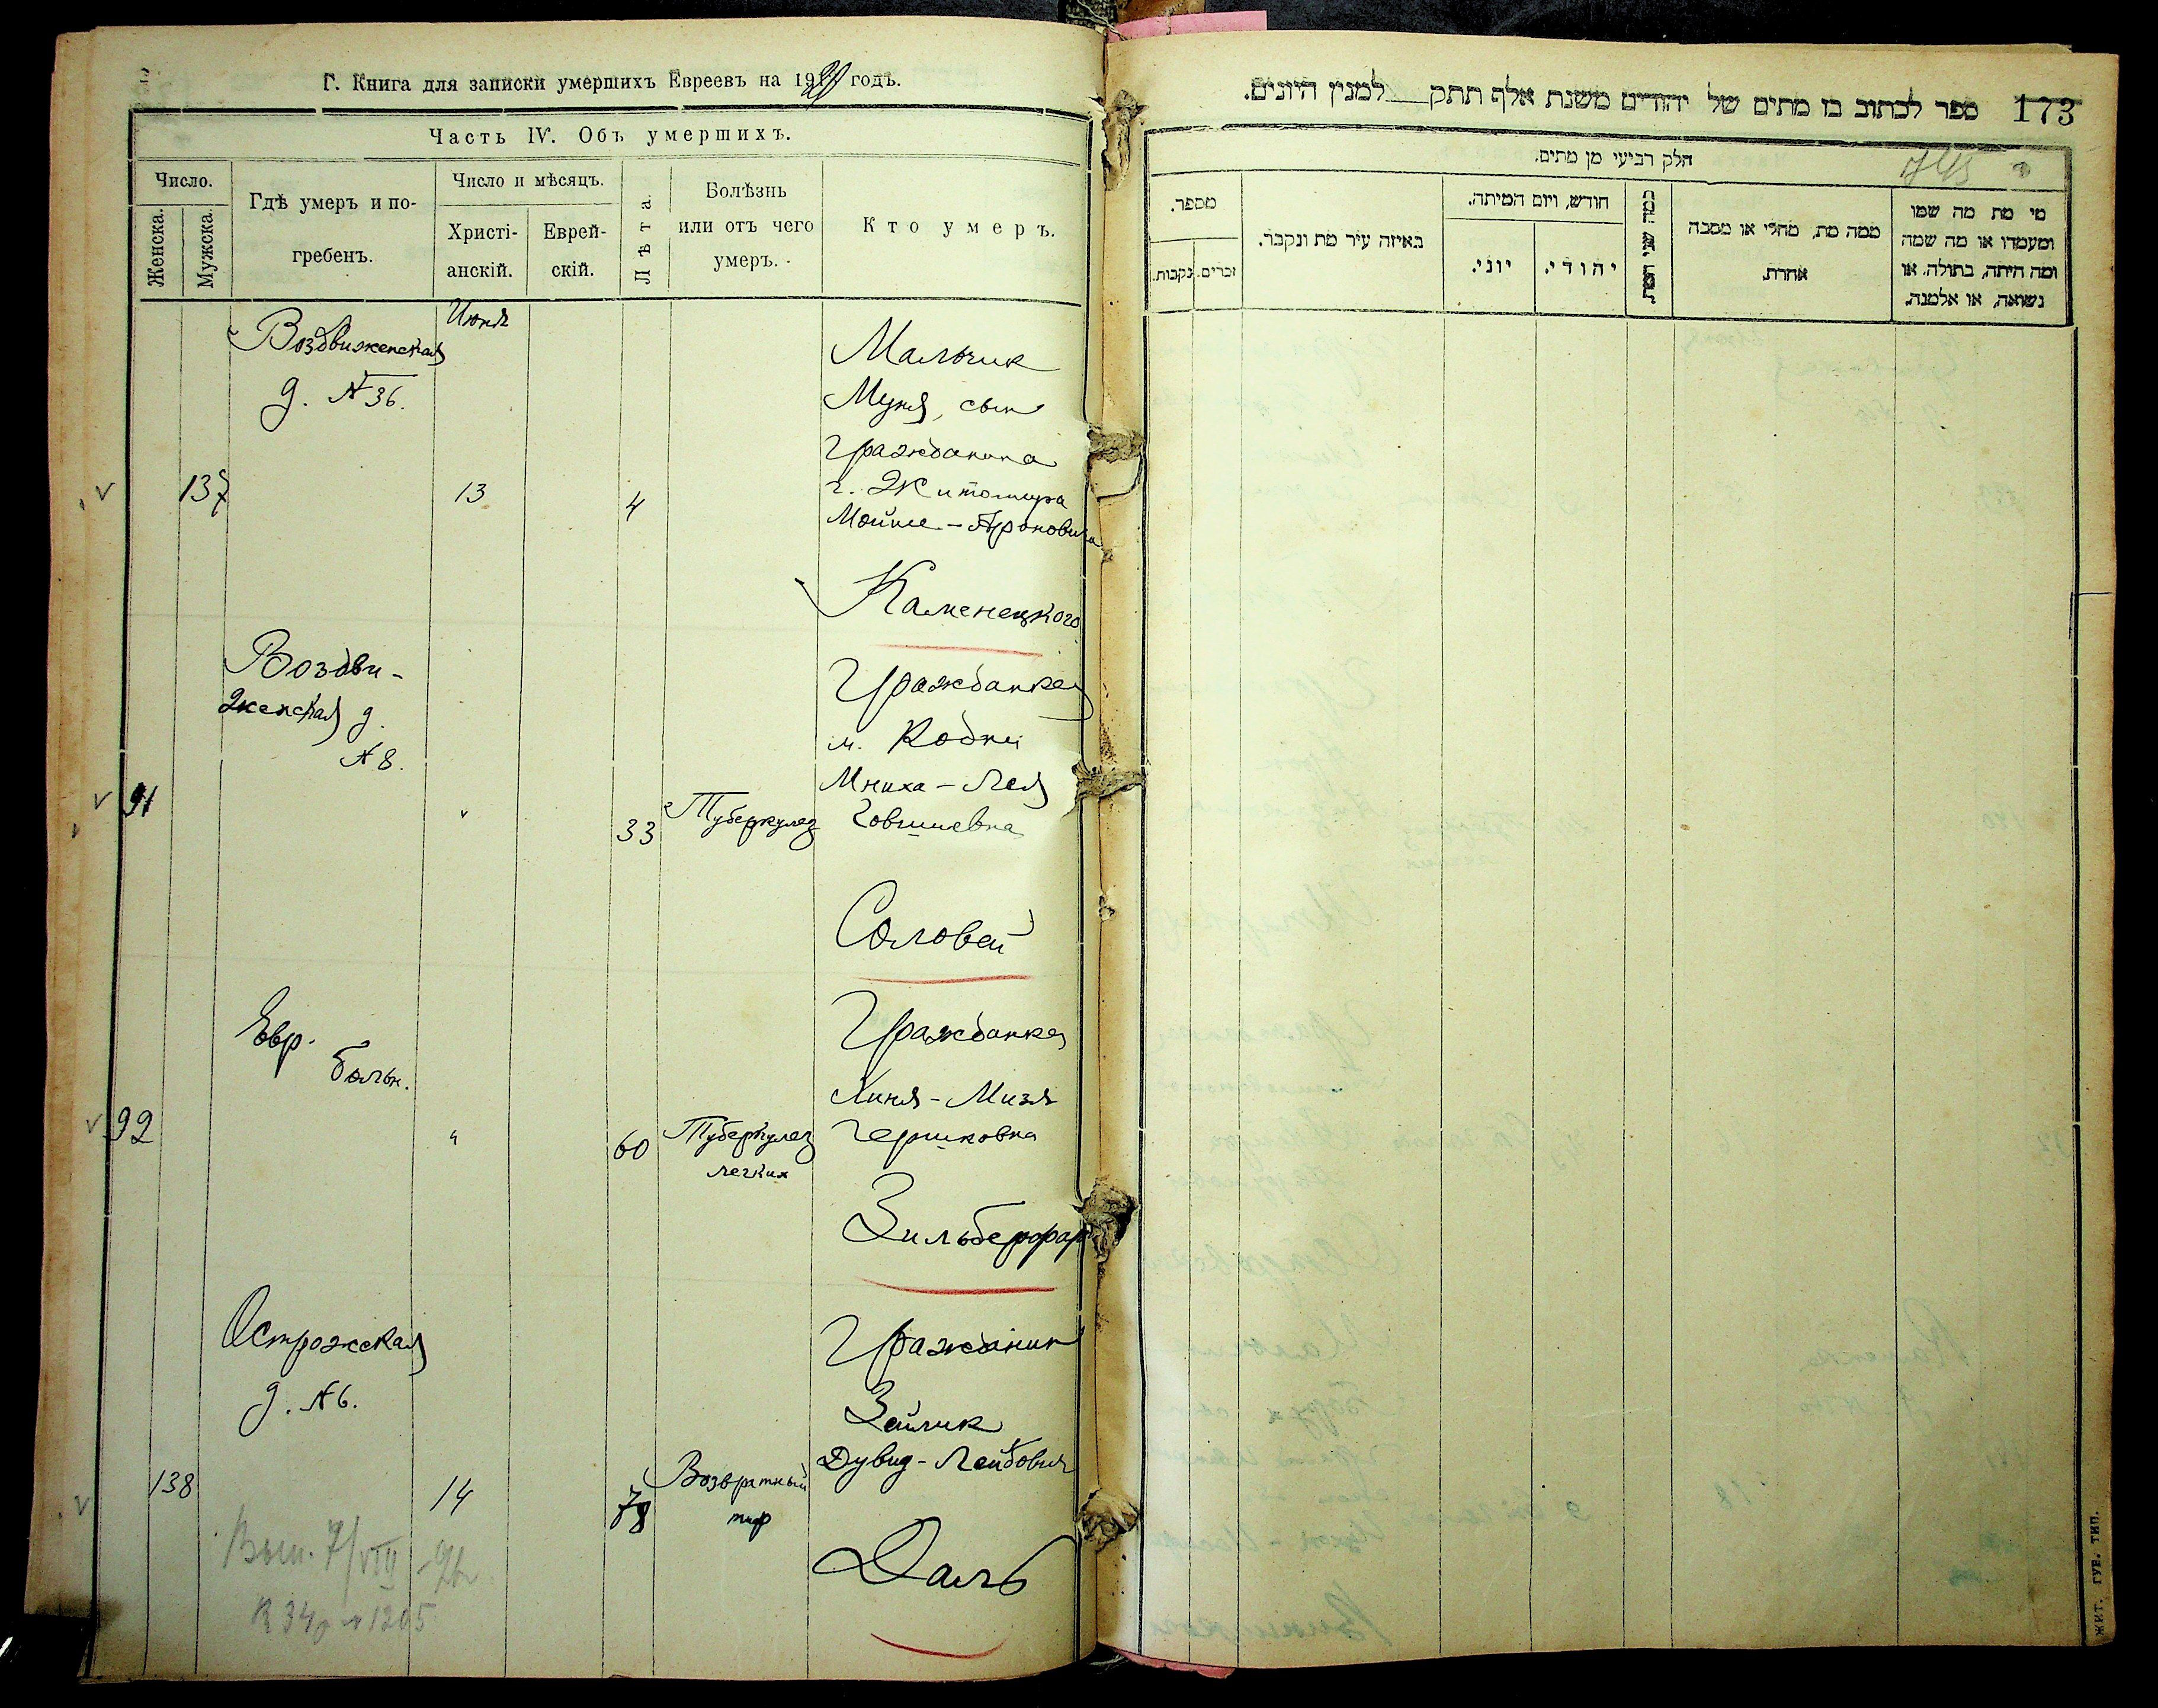 Г. Книга для записки умершихъ Евреевъ на 1920 годъ.
Часть IV. Объ умершихъ.
Число.
Женска.
Мужска.
Гдѣ умеръ и по-
гребенъ.
Число и мѣсяцъ.
Христі-
анскій.
Еврей-
скій.
Лѣта.
Болѣзнь
или отъ чего
умеръ.
Кто умеръ.
Воздвиженская
д. № 36.
Июня
137
13
4
Мальчик
Муня, сын
Гражданина
г. Житомира
Мойше-Ароновича
Каменецкого
Воздви-
женская д.
№ 8.
91
"
33
Туберкулез
Гражданка
м. Кодни
Мниха-Лея
Говшиевна
Соловей
Евр.
больн.
92
"
60
Туберкулез
легких
Гражданка
Хиня-Мизя
Гершковна
Зильберфарб
Острожская
д. № 6.
138
14
78
Возвратный
тиф
Гражданин
Зейлик
Дувид-Лейбович
Даль
Вып. 7/VIII
1205
ספר לכתוב בו מתים של יהודים משנת אלף תתק למנין היונים.
173
חלק רביעי מן מתים.
מספר.
נקבות.
זכרים.
באיזה עיר מת ונקבר.
חודש, ויום המיתה.
יוני.
יהודי.
כמה שני המת
ממה מת, מחלי או מסבה
אחרת.
מי מת מה שמו
ומעמדו או מה שמה
ומה היתה, בתולה, או
נשואה, או אלמנה.
ЖИТ. ГУБ. ТИП.